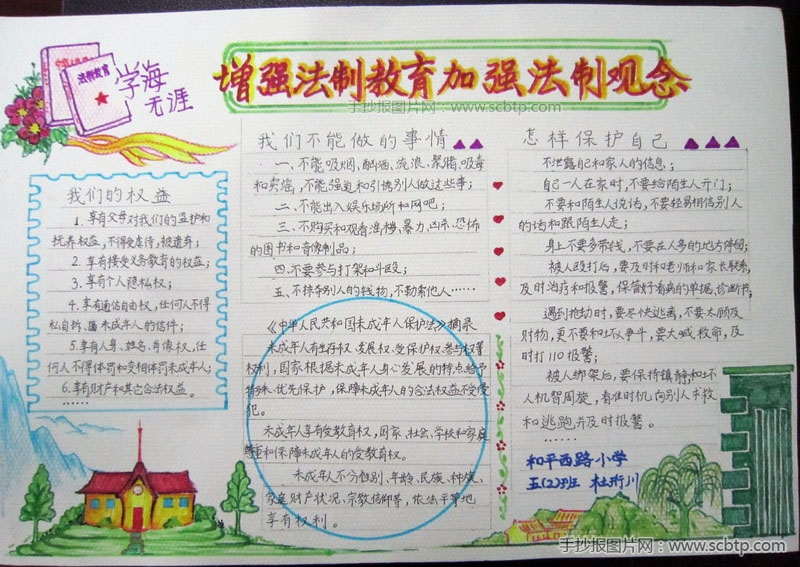 法制教育
学海
无涯
增强法制教育加强法制观念
手抄报图片网:www.scbtp.com
我们的权益
1.享有父母对我们的监护和
抚养权益,不得受虐待,被遗弃;
2.享有接受义务教育的权益;
3.享有个人隐私权;
4.享有通信自由权,任何人不得
私自拆、匿未成年人的信件;
5.享有人身、姓名、肖像权,任
何人不得体罚和变相体罚未成年人;
6.享有财产和其它合法权益。
……
我们不能做的事情
一、不能吸烟、酗酒、流浪、聚赌、吸毒
和卖淫,不能强迫和引诱别人做这些事;
二、不能出入娱乐场所和网吧;
三、不购买和观看淫秽、暴力、凶杀、恐怖
的图书和音像制品;
四、不要参与打架和斗殴;
五、不掠夺别人的钱物,不勒索他人……
《中华人民共和国未成年人保护法》摘录
未成年人有生存权、发展权、受保护权、参与权等
权利,国家根据未成年人身心发展的特点给予
特殊、优先保护,保障未成年人的合法权益不受侵
犯。
未成年人享有受教育权,国家、社会、学校和家庭
尊重和保障未成年人的受教育权。
未成年人不分性别、年龄、民族、种族、
家庭财产状况、宗教信仰等,依法平等地
享有权利。
怎样保护自己
不泄露自己和家人的信息;
自己一人在家时,不要给陌生人开门;
不要和陌生人说话,不要轻易相信别人
的话和跟陌生人走;
身上不要多带钱,不要在人多的地方停留;
被人殴打后,要及时和老师和家长联系,
及时治疗和报警,保管好看病的单据、诊断书;
遇到抢劫时,要尽快逃离,不要太顾及
财物,更不要和坏人争斗,要大喊救命,及
时打110报警;
被人绑架后,要保持镇静,和坏
人机智周旋,看准时机,向别人求救
和逃跑并及时报警。
……
和平西路小学
五(2)班 杜珩川
手抄报图片网:www.scbtp.com